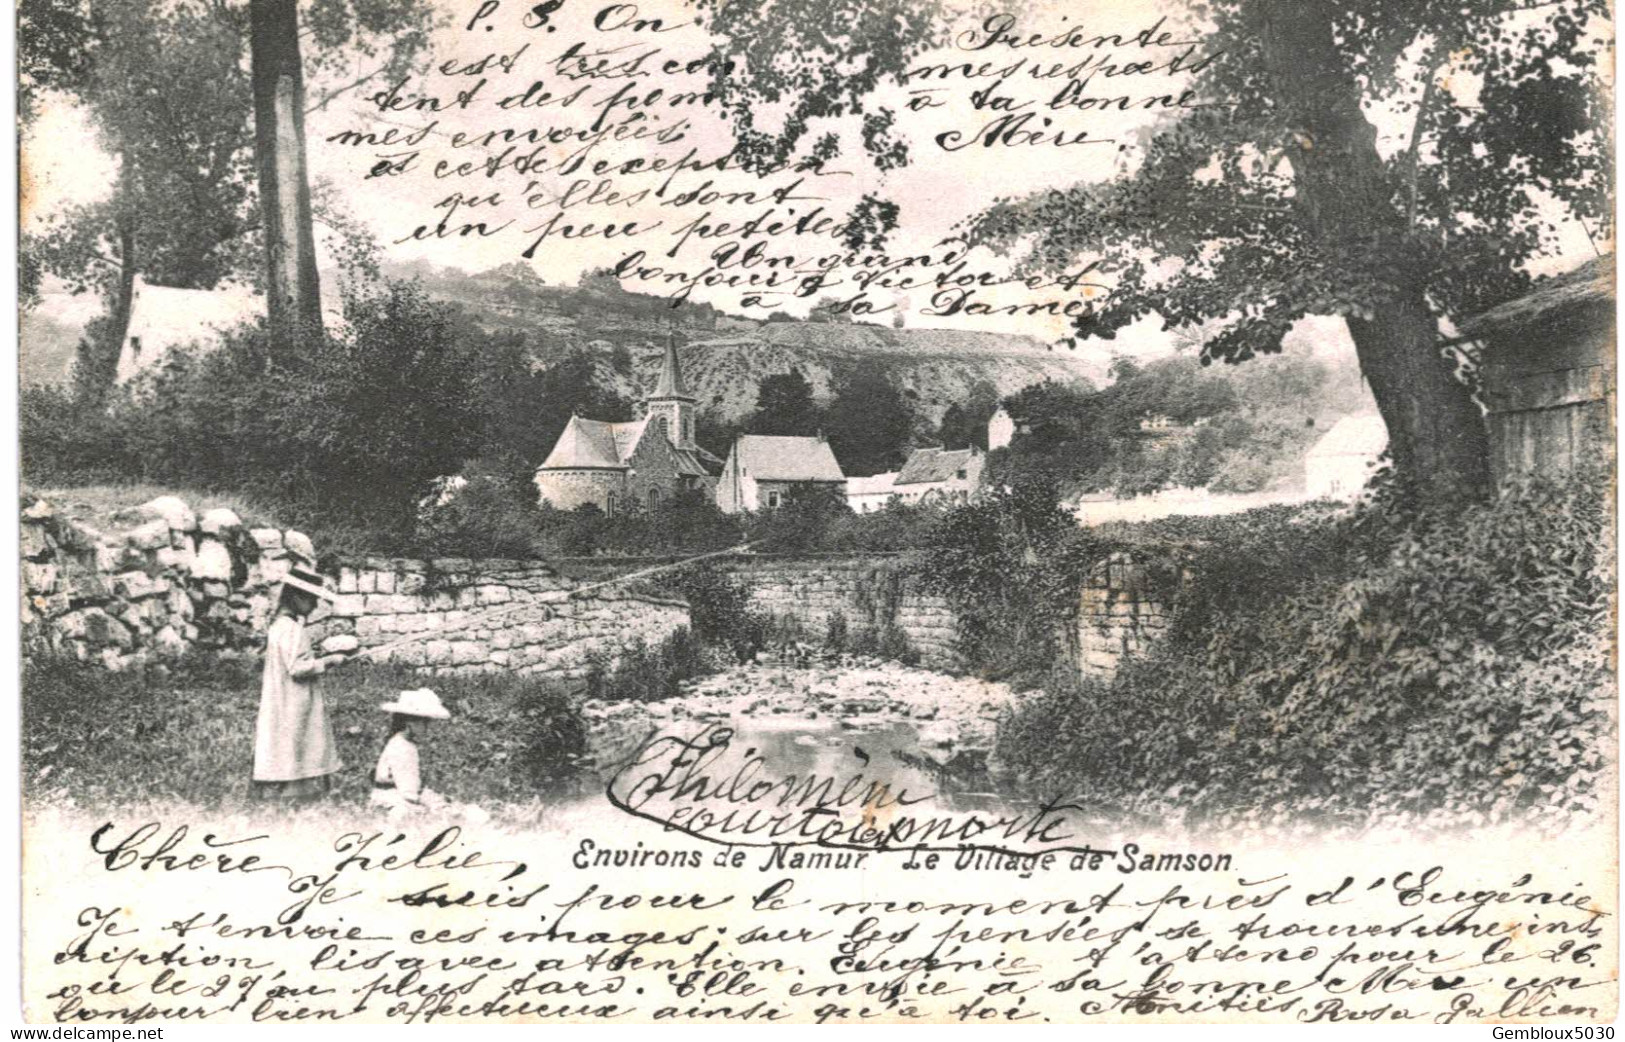 P. S. On
est très con
tent des pom
mes envoyéés
et cette exception
qu'elles sont
un peu petites
Présente
mes respects
à ta bonne
Mère.
Un grand
bonjour à Victor et
à sa Dame
Philomène
courtois morte
Environs de Namur Le Village de Samson
Chère Zélie,
Je suis pour le moment près d'Eugénie
Je t'envoie ces images; sur les pensées se trouves une ins,
cription lis avec attention. Eugénie t'attend pour le 26.
ou le 27 au plus tard. Elle envoie à sa bonne Mère un
bonjour bien affectueux ainsi qu'à toi. Amitiés Rosa Gallien
Gembloux5030